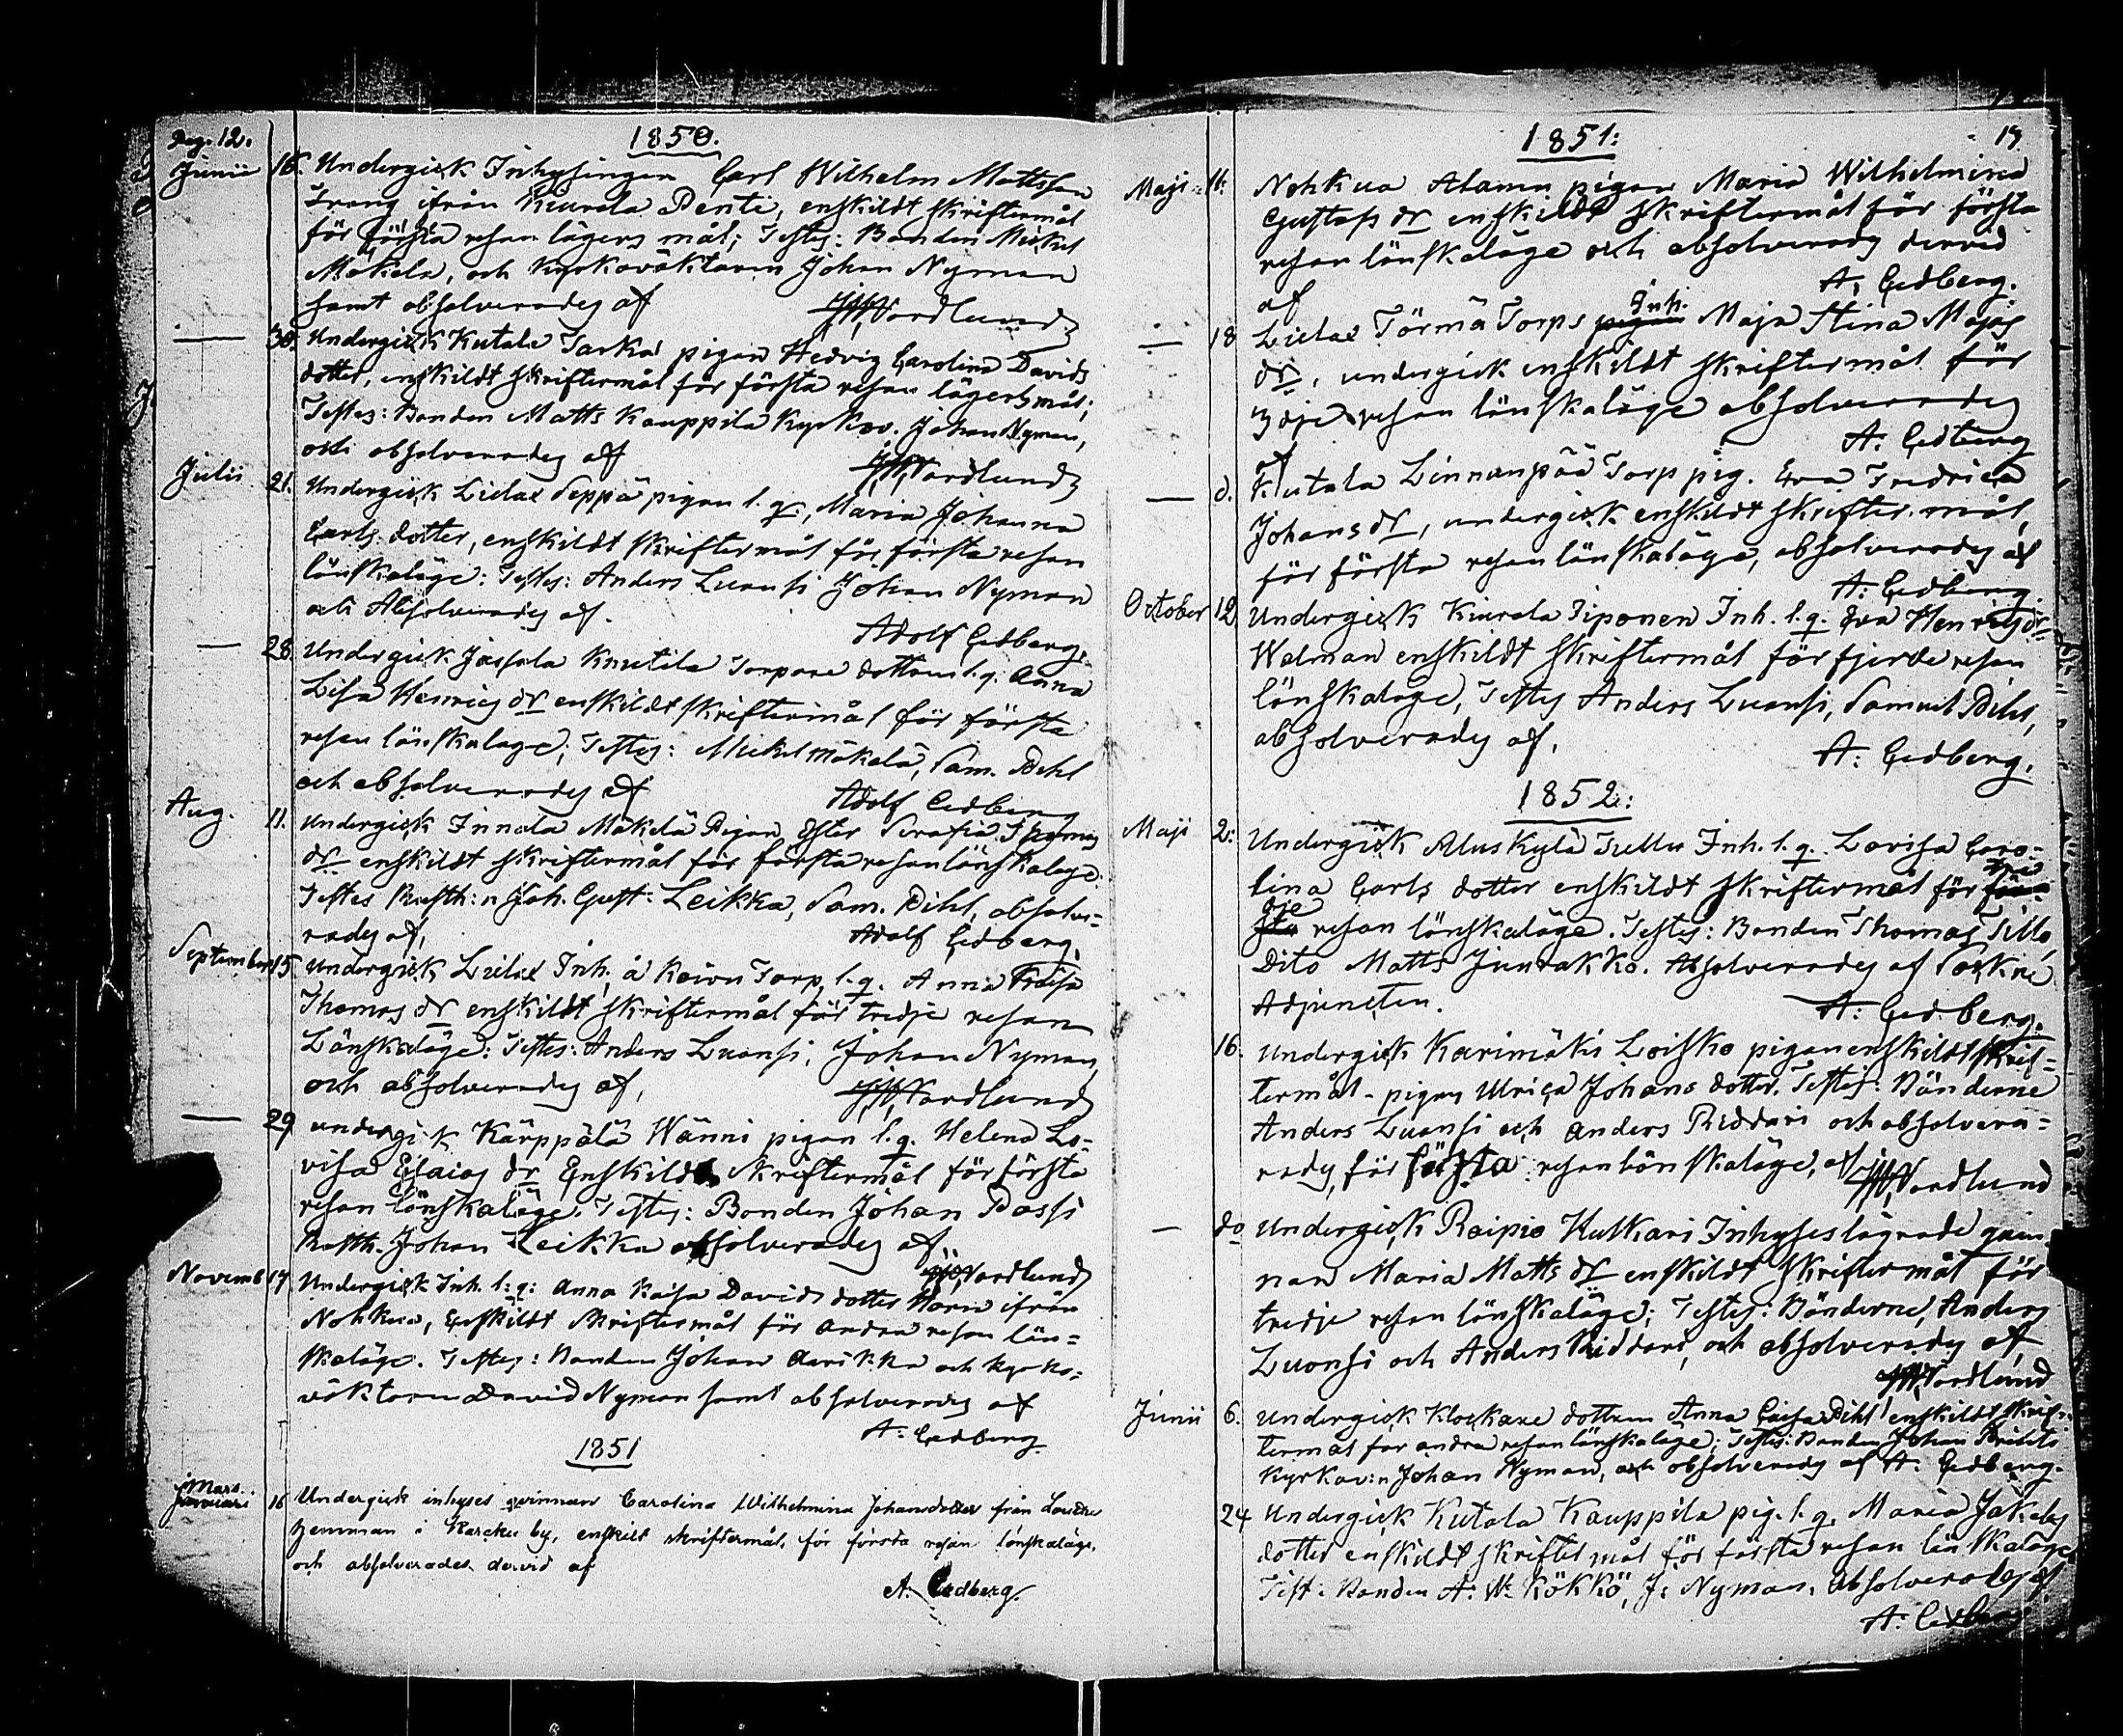 Pag. 12.
1850.
Junii 16. Undergick Inhysingen Carl Wilhelm Mattsson
Trang ifrån Kiurala Penti, enskildt skriftermål
för första resan lägers mål; Testes: Bonden Mickel
Mäkelä, och Kyrkoväktaren Johan Nyman
samt absolverades af Nordlund
— 30. Undergick Kutala Tarka pigan Hedvig Carolina Davids
dotter, enskildt skriftermål för första resan lägersmål;
Testes: Bonden Matts Kauppila Kyrkov. Johan Nyman,
och absolverades af Nordlund
Julii 21. Undergick Lielax Seppä pigan l. q., Maria Johanna
Carls dotter, enskildt skriftermål för första resan
lönskaläge: Testes: Anders Luonsi Johan Nyman
och Absolverades af.
Adolf Cedberg.
— 28. Undergick Jassala Knutila Torpare dottern l. q. Anna
Lisa Henrics dr enskildt skriftermål för första
resan lönskalage; Testes: Mickel Mäkelä, Sam. Pihl
och absolverades af
Adolf Cedberg
Aug. 11. Undergick Innala Mäkelä Pigan Ester Serafia Thomas
dr enskildt skriftermål för första resan lönskalage:
Testes Rusth:n Joh. Gust: Leikka, Sam. Pihl, absolve-
rades af,
Adolf Cedberg.
September 15 Undergick Lielax Inh. å Koivu Torp, l. q. Anna Kaisa
Thomas dr enskildt skriftermål för tredje resan
Lönskaläge: Testes: Anders Luonsi, Johan Nyman,
och absolverades af, Nordlund
— 29 undergick Kärppälä Wänni pigan l. q. Helena Lo-
visa Esaias dr Enskildt skriftermål för första
resan lönskaläge. Testes: Bonden Johan Passi
Rusth. Johan Leikka absolverades af
Nordlund
Novemb 17 Undergick Inh. l: q: Anna Kaisa Davids dotter Horn ifrån
Nohkua, Enskildt skriftermål för andra resan lön-
skaläge. Testes: Bonden Johan Aarikka och kyrko-
väktaren David Nyman samt absolverades af
A: Cedberg
1851
Mars
Januari 16 Undergick inhyses qvinnan Carolina Wilhelmina Johansdotter från
hemman i Karcku by, enskilt skriftermål, för första resan lönskaläge,
och absolverades dervid af
A: Cedberg.
1851:
Maji 11. Nohkua Alanen pigan Maria Wilhelmina
Gustafs dr enskildt skriftermål för första
resan lönskaläge och absolverades dervid
af
A; Cedberg.
— 18 Lielax Törmä Torps pigan Inh. Maja Stina Majas
dr, undergick enskildt skriftermål för
3dje resan lönskaläge absolverades
af
A: Cedberg
— d. Kutala Linnanpää Torp pig. Eva Fredrica
Johans dr, undergick enskildt skrifter mål,
för första resan lönskaläge, absolverades af
A: Cedberg
October 12 Undergick Kiurala Siponen Inh. l. q. Eva Henrics dr
Walman enskildt skriftermål för fjerde resan
lönskaläge, Testes Anders Luonsi, Samuel Pihl,
absolverades af,
A: Cedberg.
1852:
Maji 2: Undergick Aluskylä Inh. l. q. Lovisa Caro-
lina Carls dotter enskildt skriftermål för första tre
dje resan lönskaläge. Testes: Bonden Thomas Tillo,
Dito Matts Junrakko. Absolverades af Sockne
Adjuncten.
A: Cedberg.
16. Undergick Karimäki Loisko pigan enskildt skrif-
termål - pigan Ulrica Johans dotter. Testes: Bönderne
Anders Luonsi och Anders Riddari och absolvera-
rades, för första resan lönskaläge, af Nordlund
— do Undergick Roipio Kulkari Inhyses lägrade qvin-
nan Maria Matts dr enskildt skriftermål för
tredje resan lönskaläge; Testes: Bönderne, Anders
Luonsi och Anders Riddari, och absolverades af
Nordlund
Junii 6. Undergick Klockare dottern Anna Caisa Pihl enskildt skrif-
termål för andra resan lönskalage; Testes: Bonden Johan
Kyrkov:n Johan Nyman, och absolverades af A. Cedberg.
24 Undergick Kutala Kauppila pig. l. q. Maria Jakobs
dotter enskildt skrifter mål för första resan lönskaläge
Test: Bonden A: W: Kökkö, J: Nyman. Absolverades af
A: Cedberg